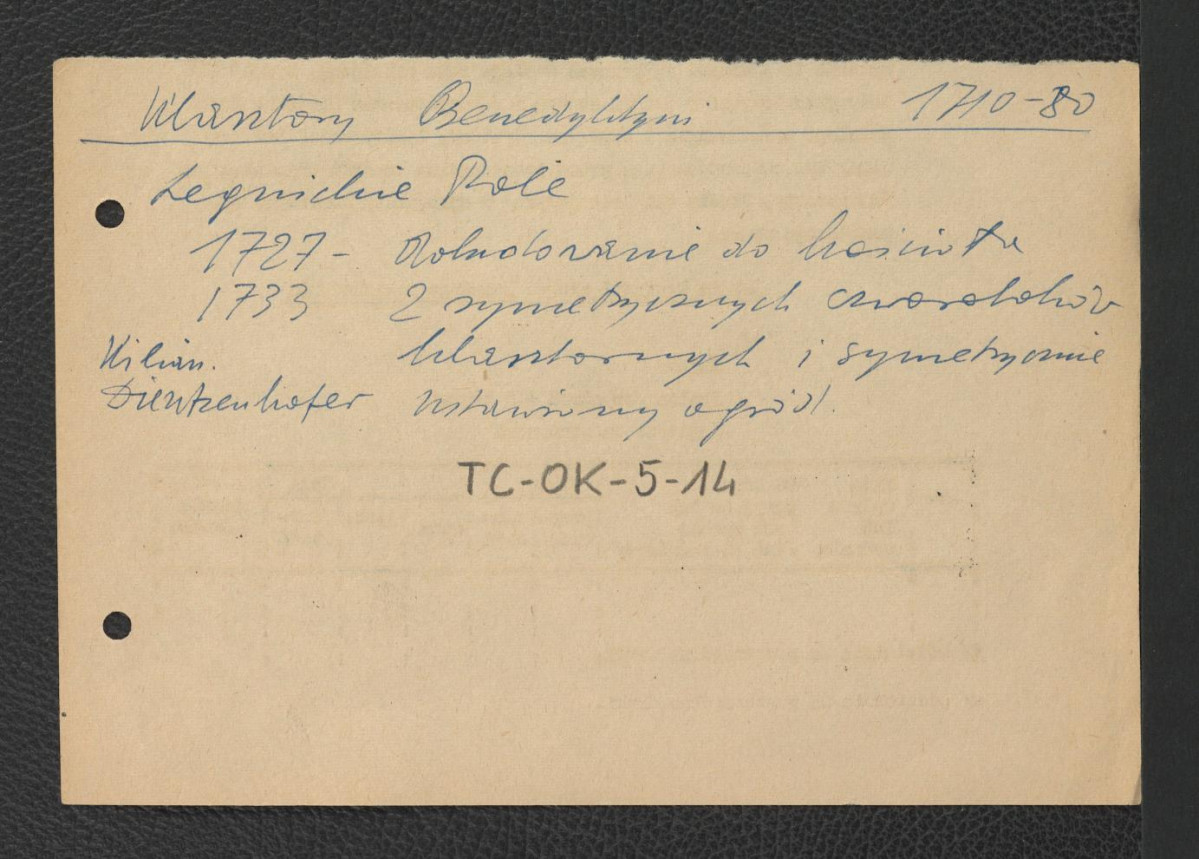 Klasztory Benedyktyni 1710-80
Legnickie Pole
1727 - Dobudowanie do kościoła
1733 2 symetrycznych czworoboków
Kilian. klasztornych i symetrycznie
Dientzenhofer ustawiony ogród.
TC-OK-5-14